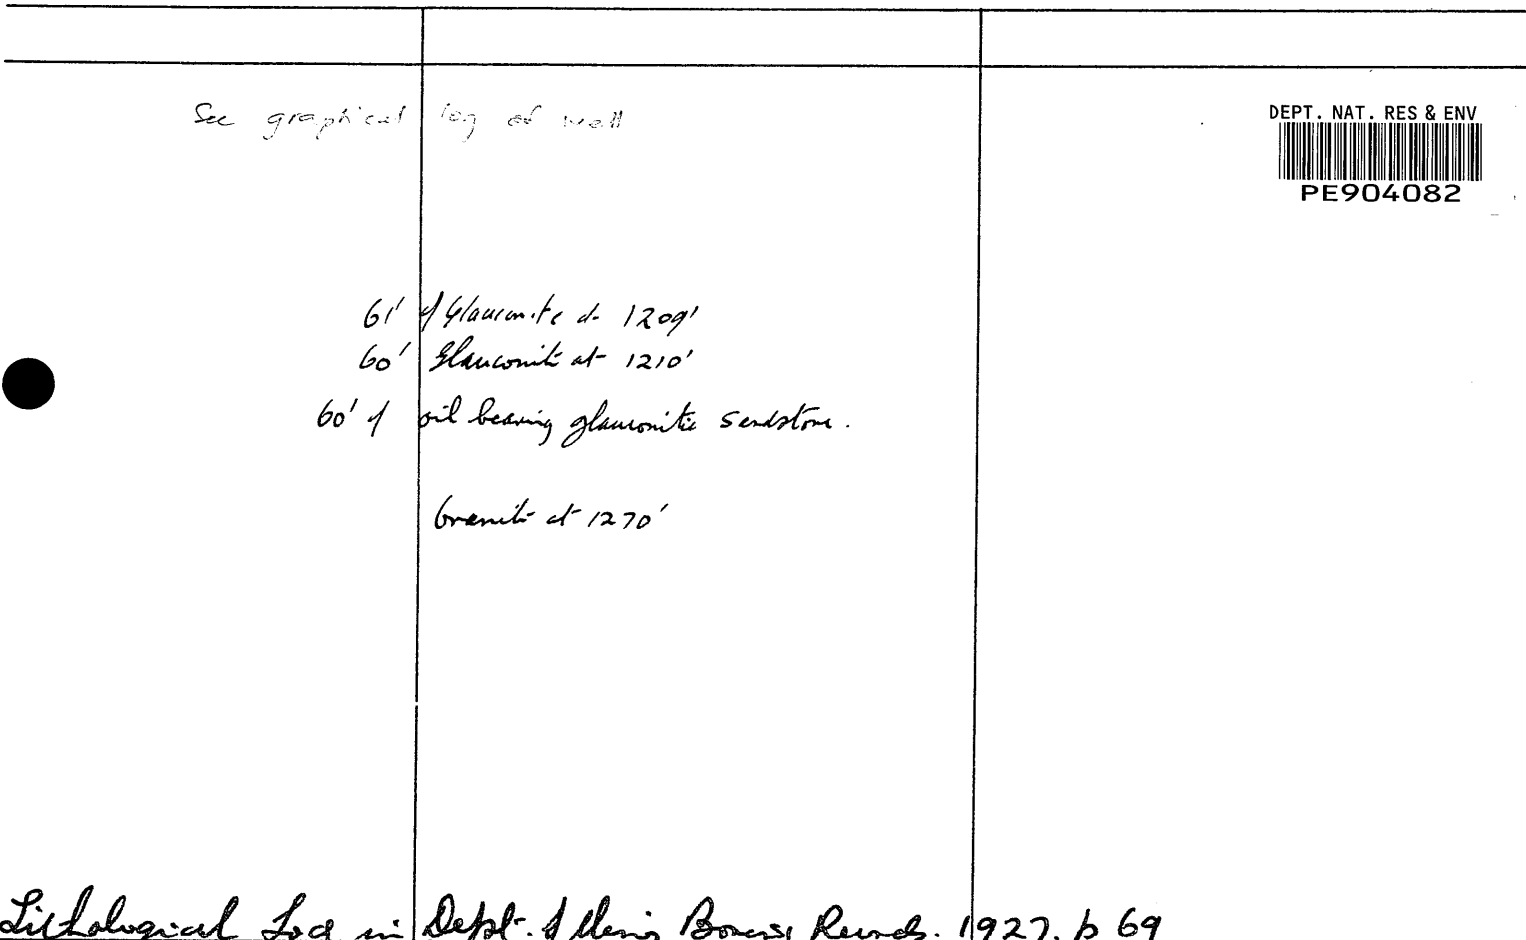 See graphical log of well
DEPT. NAT. RES & ENV
PE904082
61' of Glauconite at 1209'
60' Glauconite at 1210'
60' of oil bearing glauconitic sandstone.
Granite at 1270'
Lithological Log in Dept. of Mines Boring Records. 1927. p 69